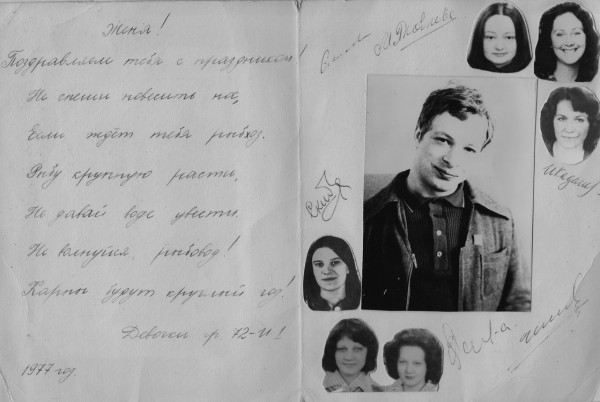 Женя!
Поздравляем тебя с праздником!
Не спеши повесить нос,
Если ждёт тебя рыбхоз.
Рыбу крупную расти,
Не давай воде увести.
Не волнуйся, рыбовод!
Карпы будут круглый год!
Девочки гр. 72-И1
1977 год.
М. Яковлева